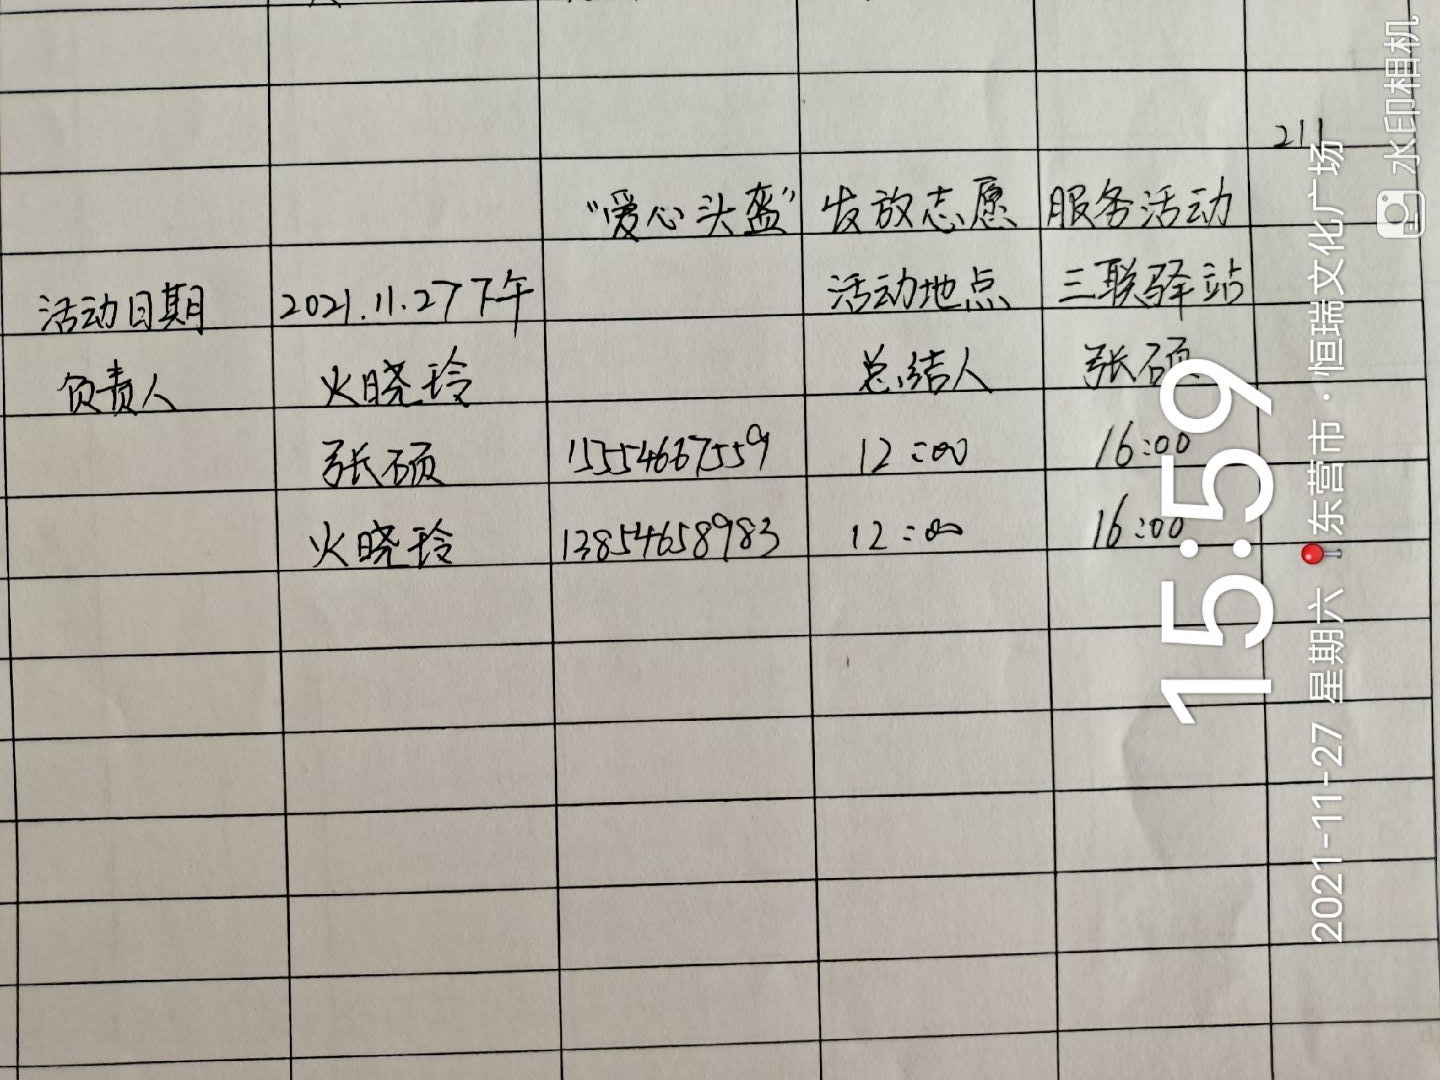 211
“爱心头盔”发放志愿服务活动
活动日期 2021.11.27下午 活动地点 三联驿站
负责人 火晓玲 总结人 张硕
张硕 15554667559 12:00 16:00
火晓玲 13854658983 12:00 16:00
15:59
2021-11-27 星期六 东营市·恒瑞文化广场
水印相机